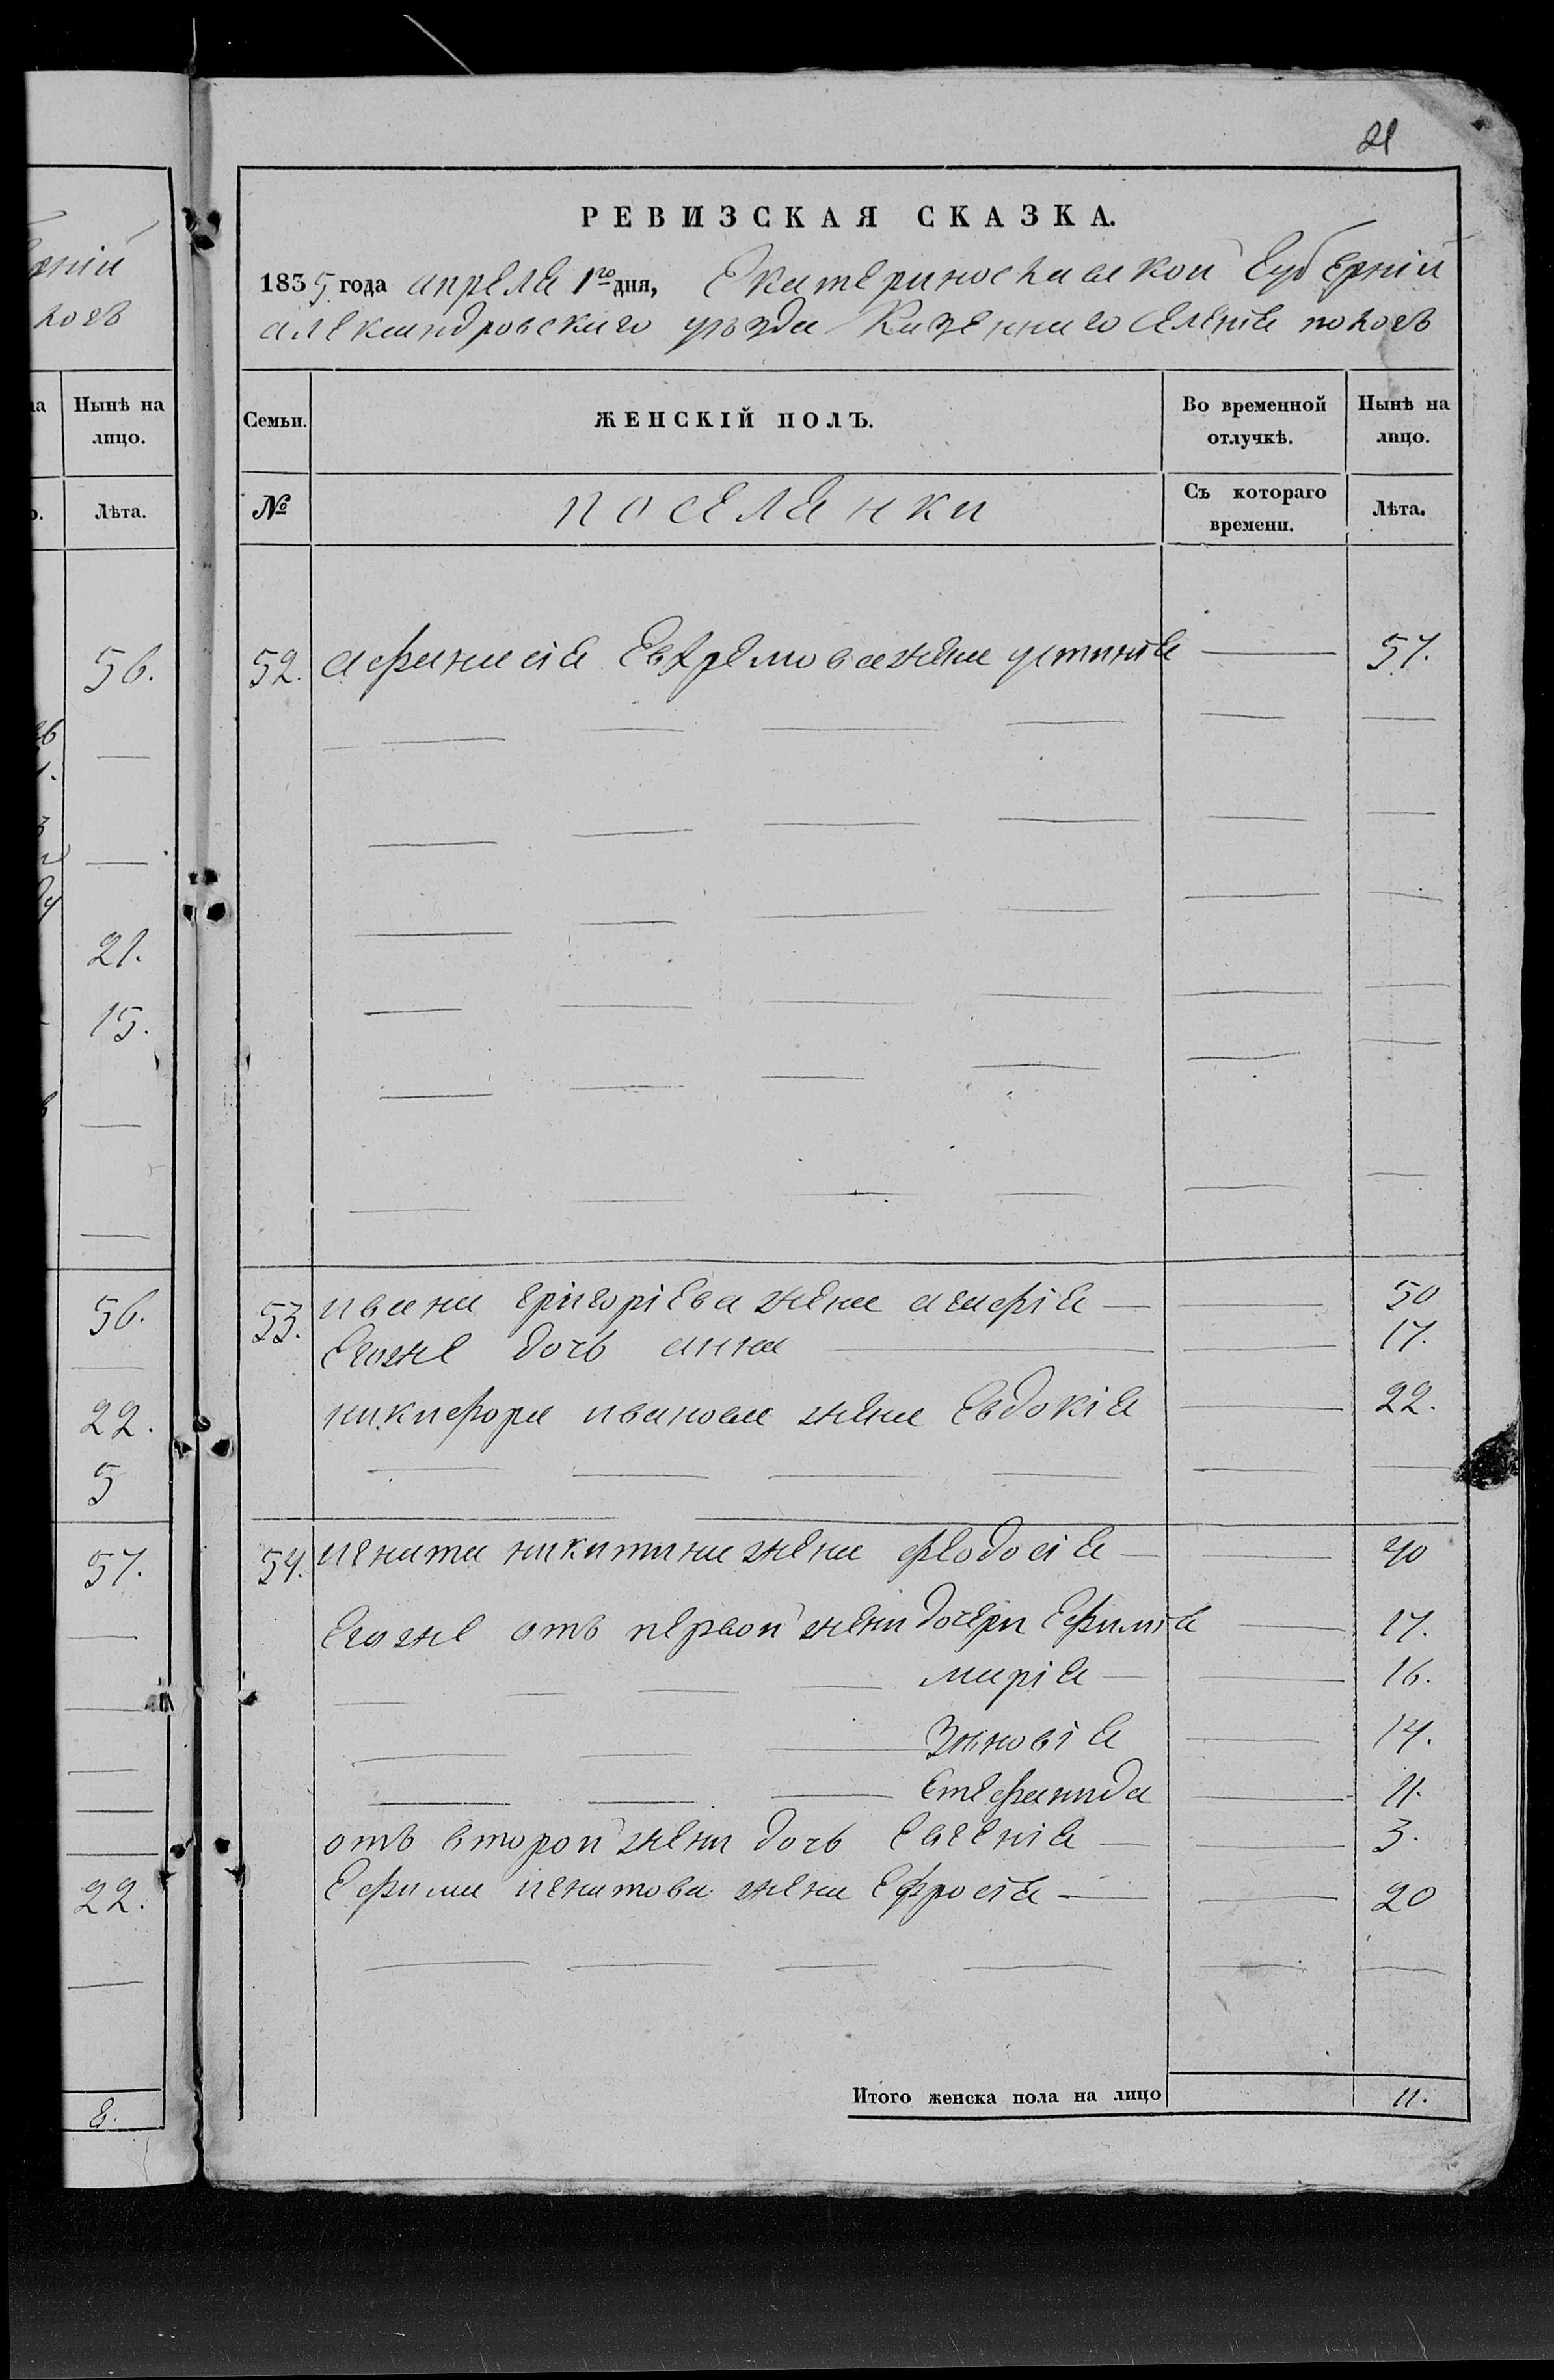 21
РЕВИЗСКАЯ СКАЗКА.
1835 года апреля 1го дня, Екатеринославской Губернии
александровского уезда Казенного селения пологъ
Семьи. ЖЕНСКІЙ ПОЛЪ. Во временной отлучкѣ. Нынѣ на лицо.
№ поселянки Съ котораго времени. Лѣта.
52. афанасія Ефремова жена устинія 57.
53. ивана григоріева жена агафія 50
Егоже дочь анна 17.
никифора иванова жена Евдокія 22.
54. игната никитина жена феодосія 40
Егоже отъ первой жени дочери Ефимія 17.
марія 16.
Зиновія 14.
Стефанида 11.
отъ второй жени дочь Евгенія 3.
Ефима игнатова жена Ефросія 20
Итого женска пола на лицо 11.
ерній
логъ
Нынѣ на
лицо.
Лѣта.
56.
21.
15.
56.
22.
5
57.
22.
8.